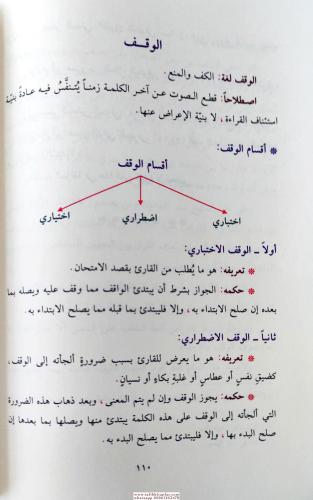 الوقـف
الوقف لغة: الكف والمنع.
اصطلاحاً: قطع الصوت عن آخر الكلمة زمناً يُتنفَّسُ فيه عادةً بنيّة
استئناف القراءة، لا بنيّة الإعراض عنها.
* أقسام الوقف:
أقسام الوقف
اختباري
اضطراري
اختياري
أولاً ـ الوقف الاختباري:
* تعريفه: هو ما يُطلب من القارئ بقصد الامتحان.
* حكمه: الجواز بشرط أن يبتدئ الواقف مما وقف عليه ويصله بما
بعده إن صلح الابتداء به، وإلا فليبتدئ بما قبله مما يصلح الابتداء به.
ثانياً ـ الوقف الاضطراري:
* تعريفه: هو ما يعرض للقارئ بسبب ضرورةٍ ألجأته إلى الوقف،
كضيقِ نفسٍ أو عطاسٍ أو غلبةِ بكاءٍ أو نسيانٍ.
* حكمه: يجوز الوقف وإن لم يتم المعنى، وبعد ذهاب هذه الضرورة
التي ألجأته إلى الوقف على هذه الكلمة يبتدئ منها ويصلها بما بعدها إن
صلح البدء بها، وإلا فليبتدئ مما يصلح البدء به.
١١٠